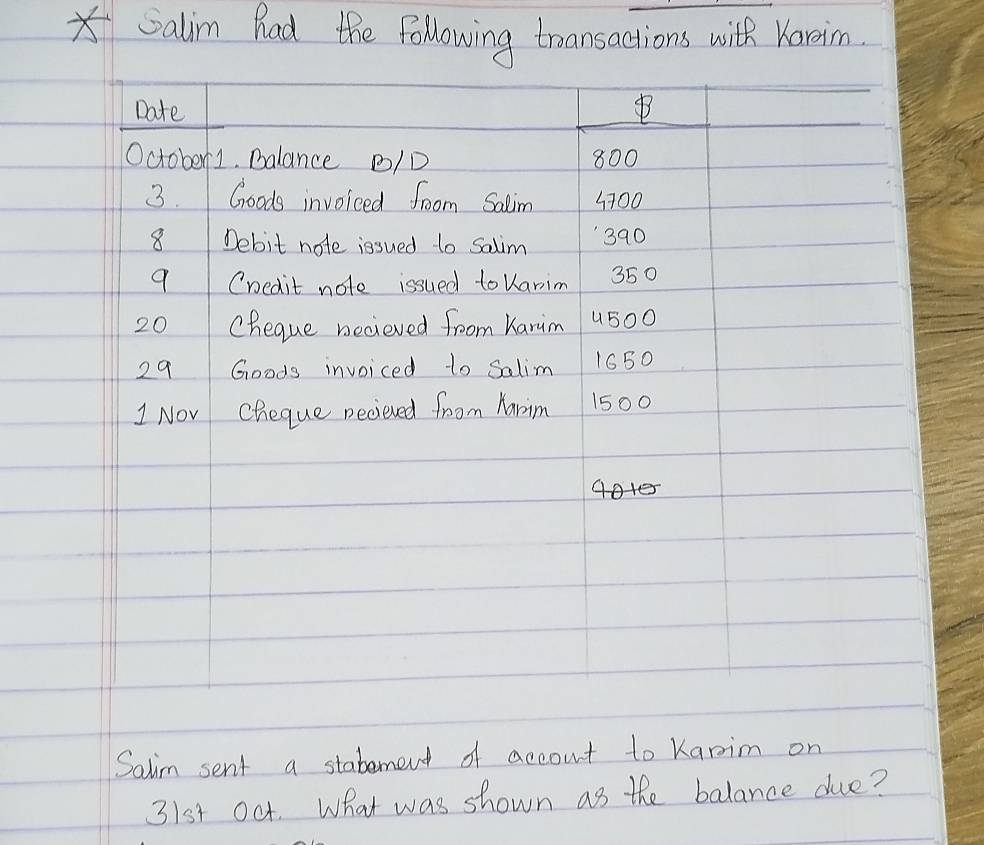 Salim had the following transactions with Karim.
Date $
October 1. Balance B/D 800
3. Goods invoiced from Salim 4700
8 Debit note issued to Salim 390
9 Credit note issued to Karim 350
20 Cheque recieved from Karim 4500
29 Goods invoiced to Salim 1650
1 Nov Cheque recieved from Karim 1500
Salim sent a statement of account to Karim on
31st oct. What was shown as the balance due?